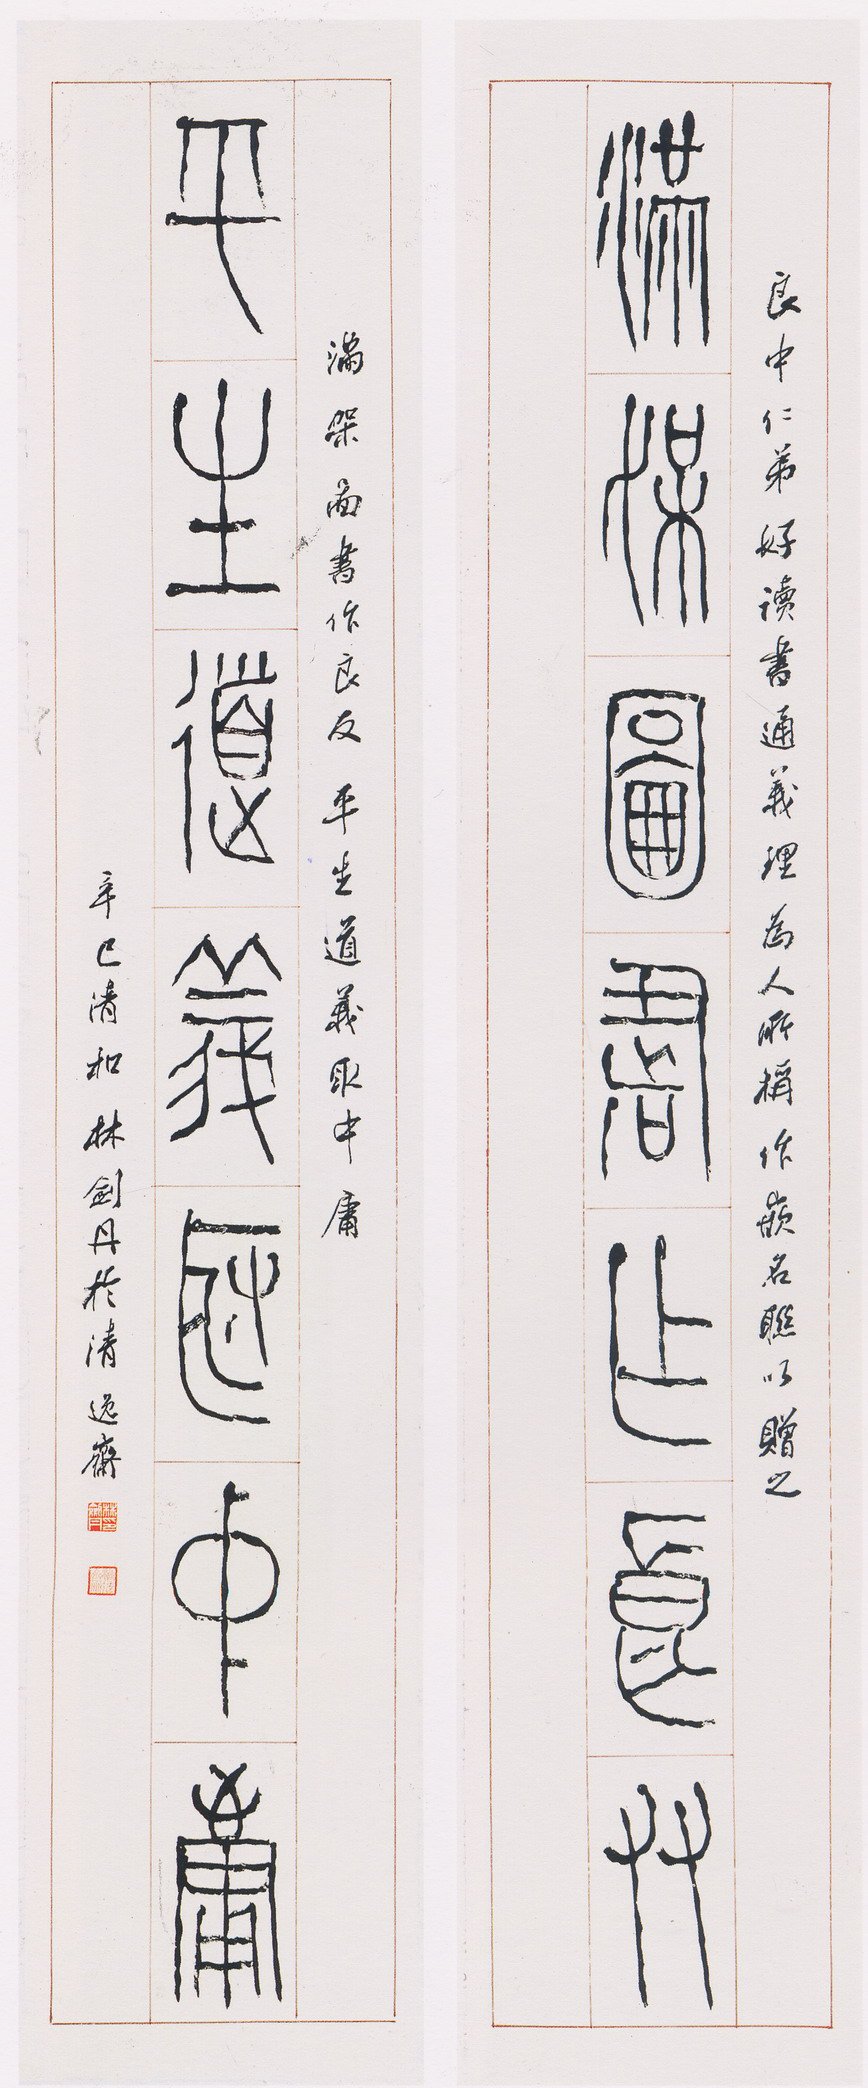 良中仁弟好读書通義理為人所稱作嵌名聯以贈之
滿架圖書作良友
滿架圖書作良友 平生道義取中庸
平生道義取中庸
辛巳清和 林劍丹於清逸齋